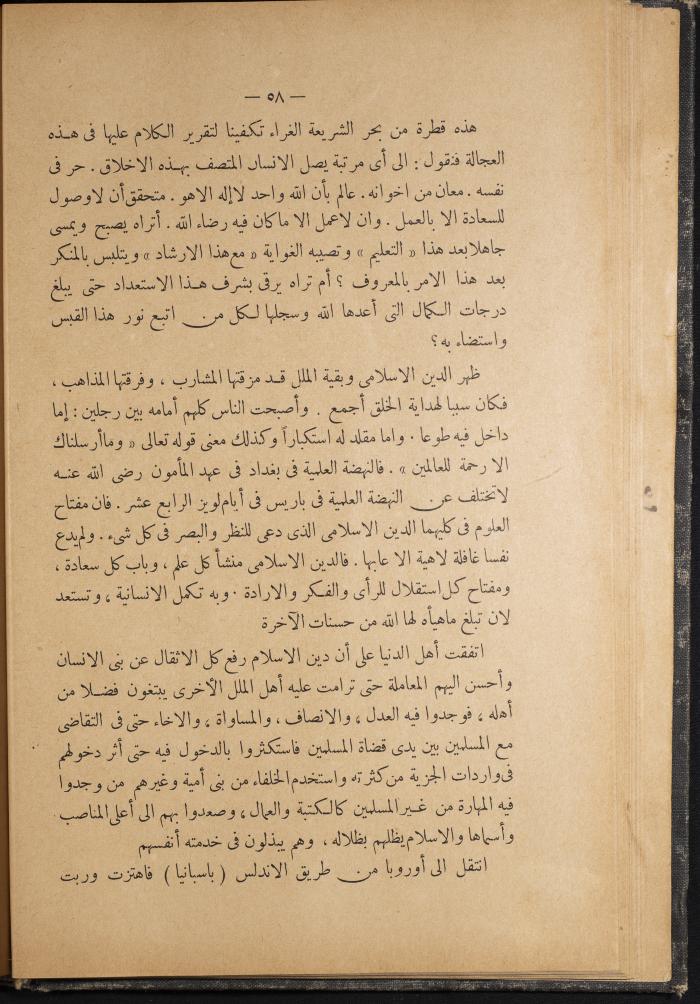 — ٥٨ —
هذه قطرة من بحر الشريعة الغراء تكفينا لتقرير الكلام عليها فى هذه
العجالة فنقول : الى أى مرتبة يصل الانسان المتصف بهذه الاخلاق . حر فى
نفسه . معان من اخوانه . عالم بأن الله واحد لا إله الا هو . متحقق أن لا وصول
للسعادة الا بالعمل . وان لا عمل الا ما كان فيه رضاء الله . أتراه يصبح ويمسى
جاهلا بعد هذا « التعليم » وتصيبه الغواية « مع هذا الارشاد » ويتلبس بالمنكر
بعد هذا الامر بالمعروف ؟ أم تراه يرقى بشرف هذا الاستعداد حتى يبلغ
درجات الكمال التى أعدها الله وسجلها لكل من اتبع نور هذا القبس
واستضاء به ؟
ظهر الدين الاسلامى وبقية الملل قد مزقتها المشارب ، وفرقتها المذاهب ،
فكان سببا لهداية الخلق أجمع . وأصبحت الناس كلهم أمامه بين رجلين : إما
داخل فيه طوعا . واما مقلد له استكباراً وكذلك معنى قوله تعالى « وما أرسلناك
الا رحمة للعالمين » . فالنهضة العلمية فى بغداد فى عهد المأمون رضى الله عنه
لا تختلف عن النهضة العلمية فى باريس فى أيام لويز الرابع عشر . فان مفتاح
العلوم فى كليهما الدين الاسلامى الذى دعى للنظر والبصر فى كل شىء . ولم يدع
نفسا غافلة لاهية الا عابها . فالدين الاسلامى منشأ كل علم ، وباب كل سعادة ،
ومفتاح كل استقلال للرأى والفكر والارادة . وبه تكمل الانسانية ، وتستعد
لان تبلغ ما هيأه لها الله من حسنات الآخرة
اتفقت أهل الدنيا على أن دين الاسلام رفع كل الاثقال عن بنى الانسان
وأحسن اليهم المعاملة حتى ترامت عليه أهل الملل الأخرى يبتغون فضلا من
أهله ، فوجدوا فيه العدل ، والانصاف ، والمساواة ، والاخاء حتى فى التقاضى
مع المسلمين بين يدى قضاة المسلمين فاستكثروا بالدخول فيه حتى أثر دخولهم
فى واردات الجزية من كثرته واستخدم الخلفاء من بنى أمية وغيرهم من وجدوا
فيه المهارة من غير المسلمين كالكتبة والعمال ، وصعدوا بهم الى أعلى المناصب
وأسماها والاسلام يظلهم بظلاله ، وهم يبذلون فى خدمته أنفسهم
انتقل الى أوروبا من طريق الاندلس ( باسبانيا ) فاهتزت وربت